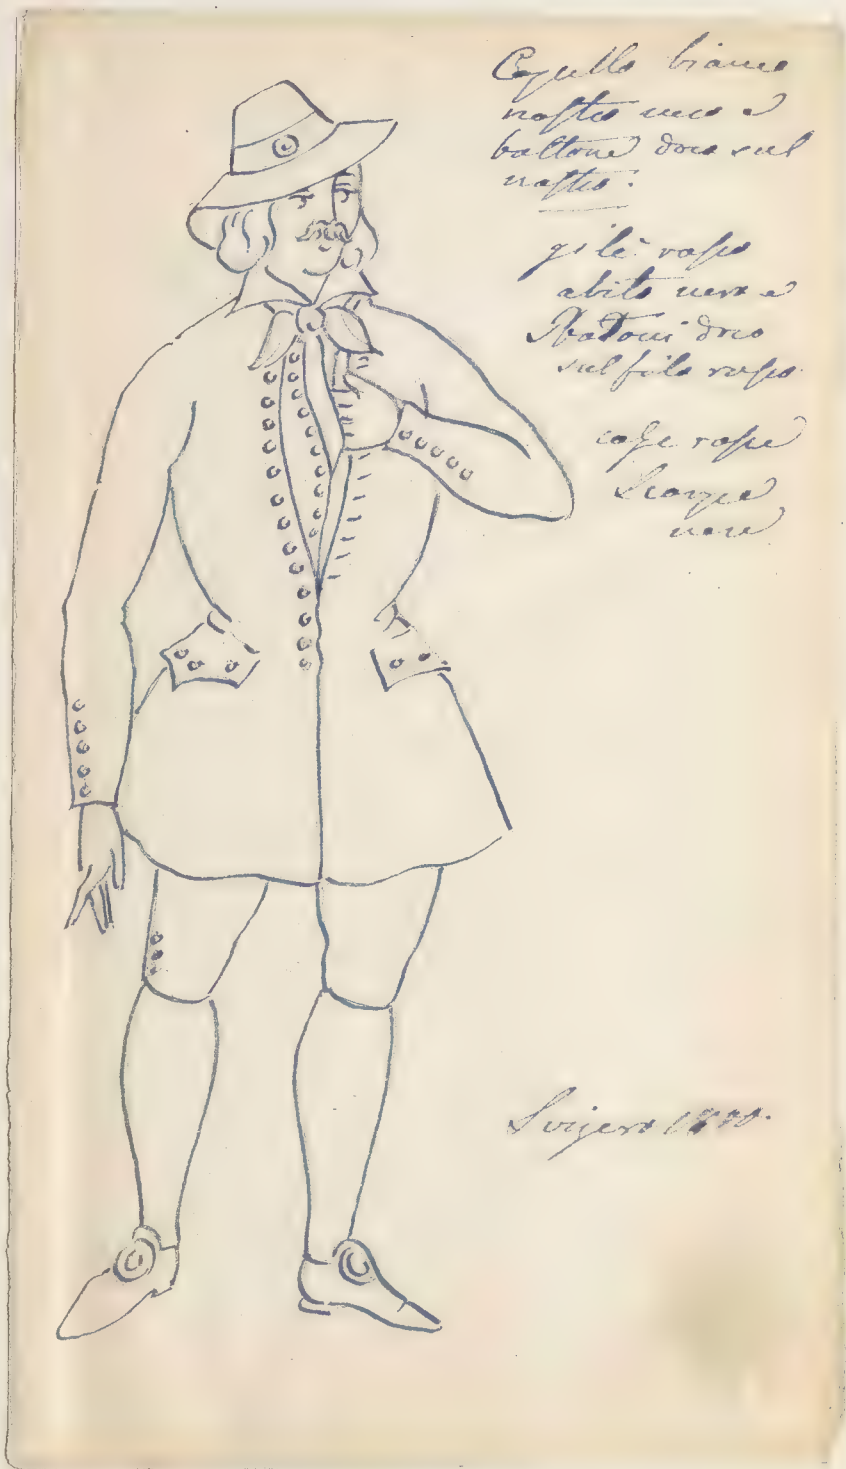 Capello bianco
nastro nero e
bottone d'oro sul
nastro.
gilè rosso
abito nero e
Bottoni d'oro
sul filo rosso
calze rosse
Scarpe
nere
Svizero